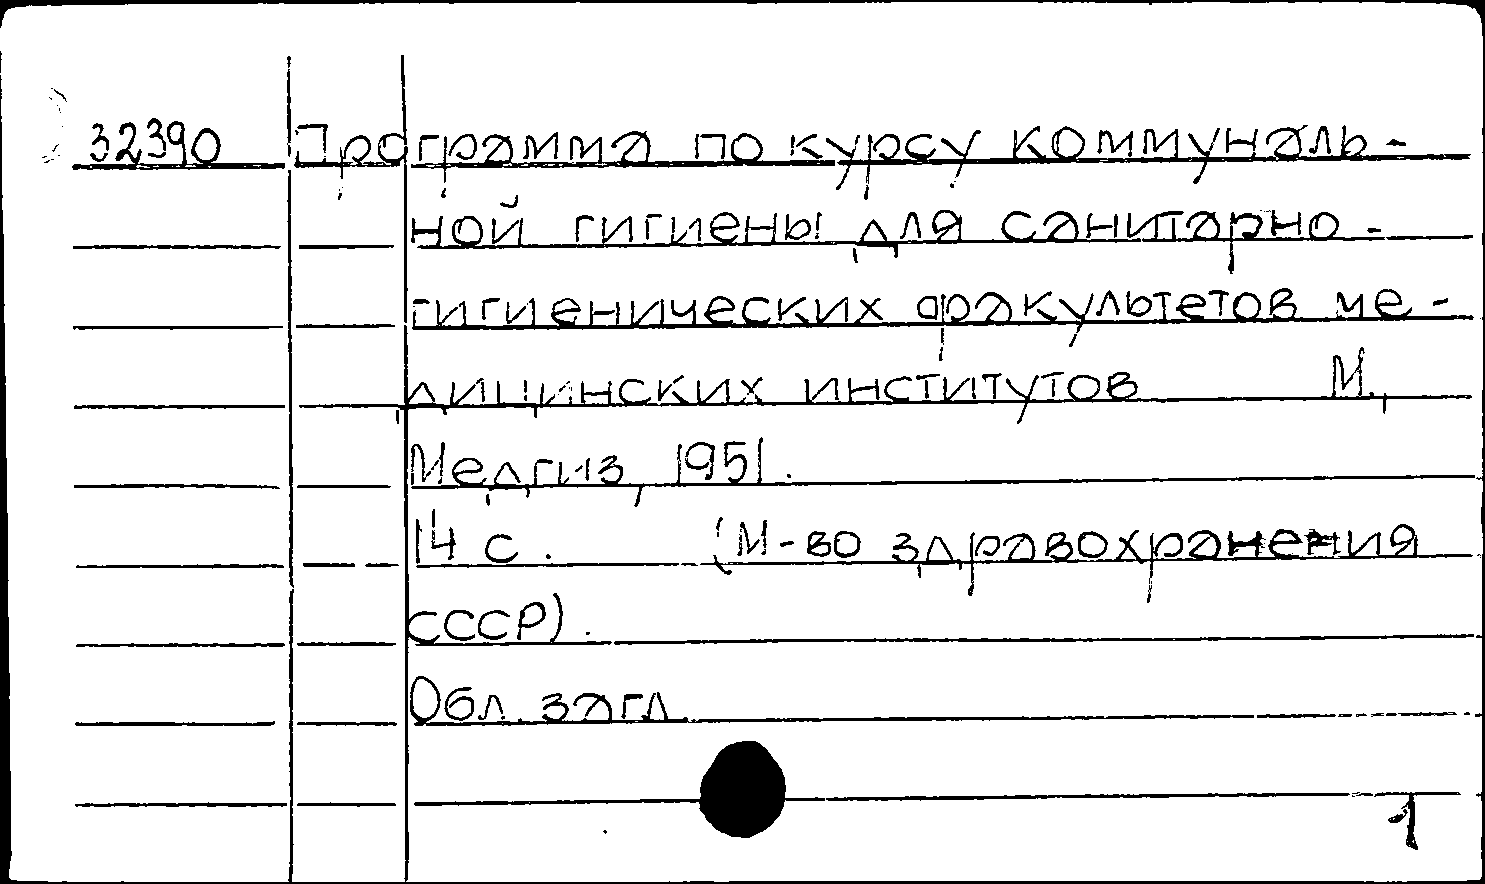 32390 Программа по курсу коммуналь-
ной гигиены для санитарно-
гигиенических факультетов ме-
дицинских институтов М.,
Медгиз, 1951.
14 с. (М-во здравохранения
СССР).
Обл. загл.
1